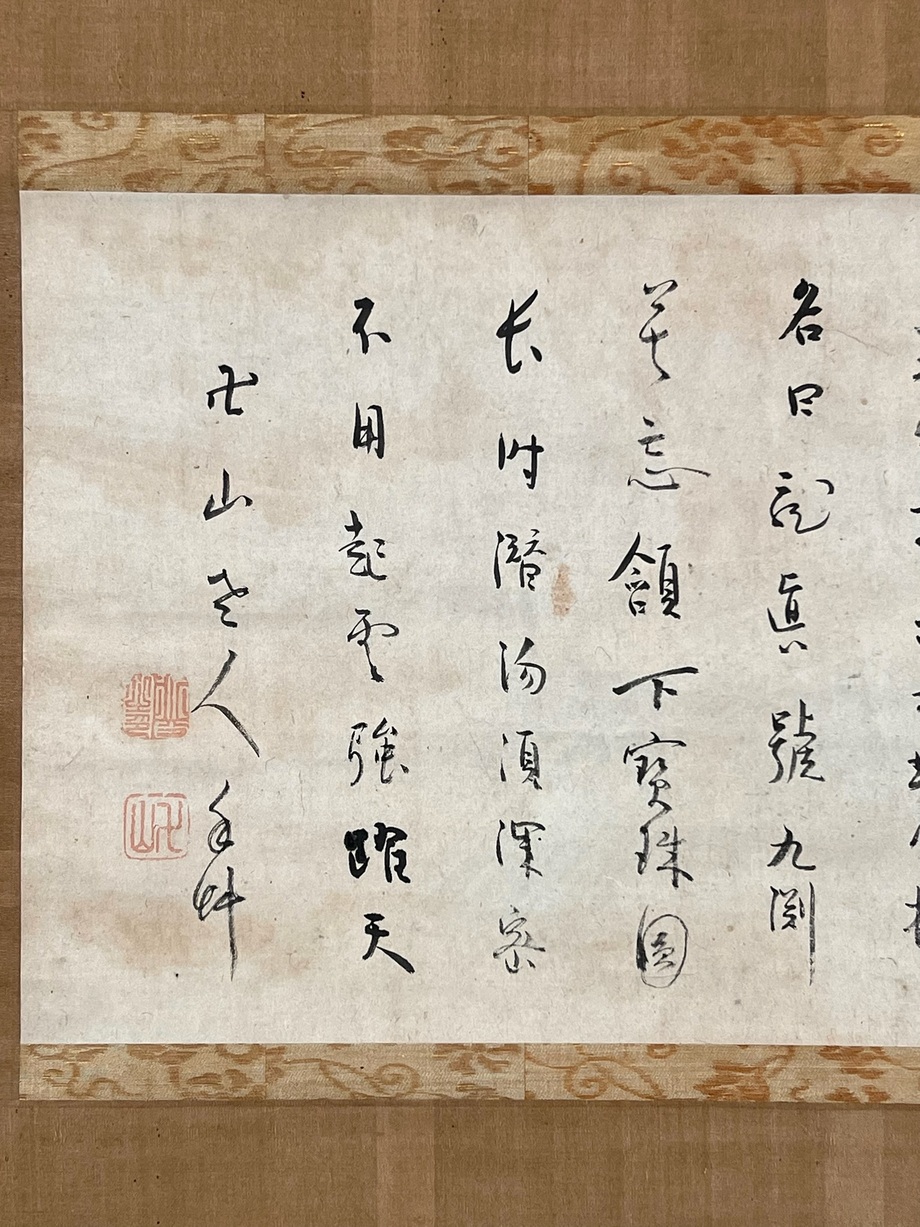 名曰龍真號九淵
莫忘頷下寶珠圓
長時潛泳須深密
不用起雲強躍天
卍山老人手艸
卍山